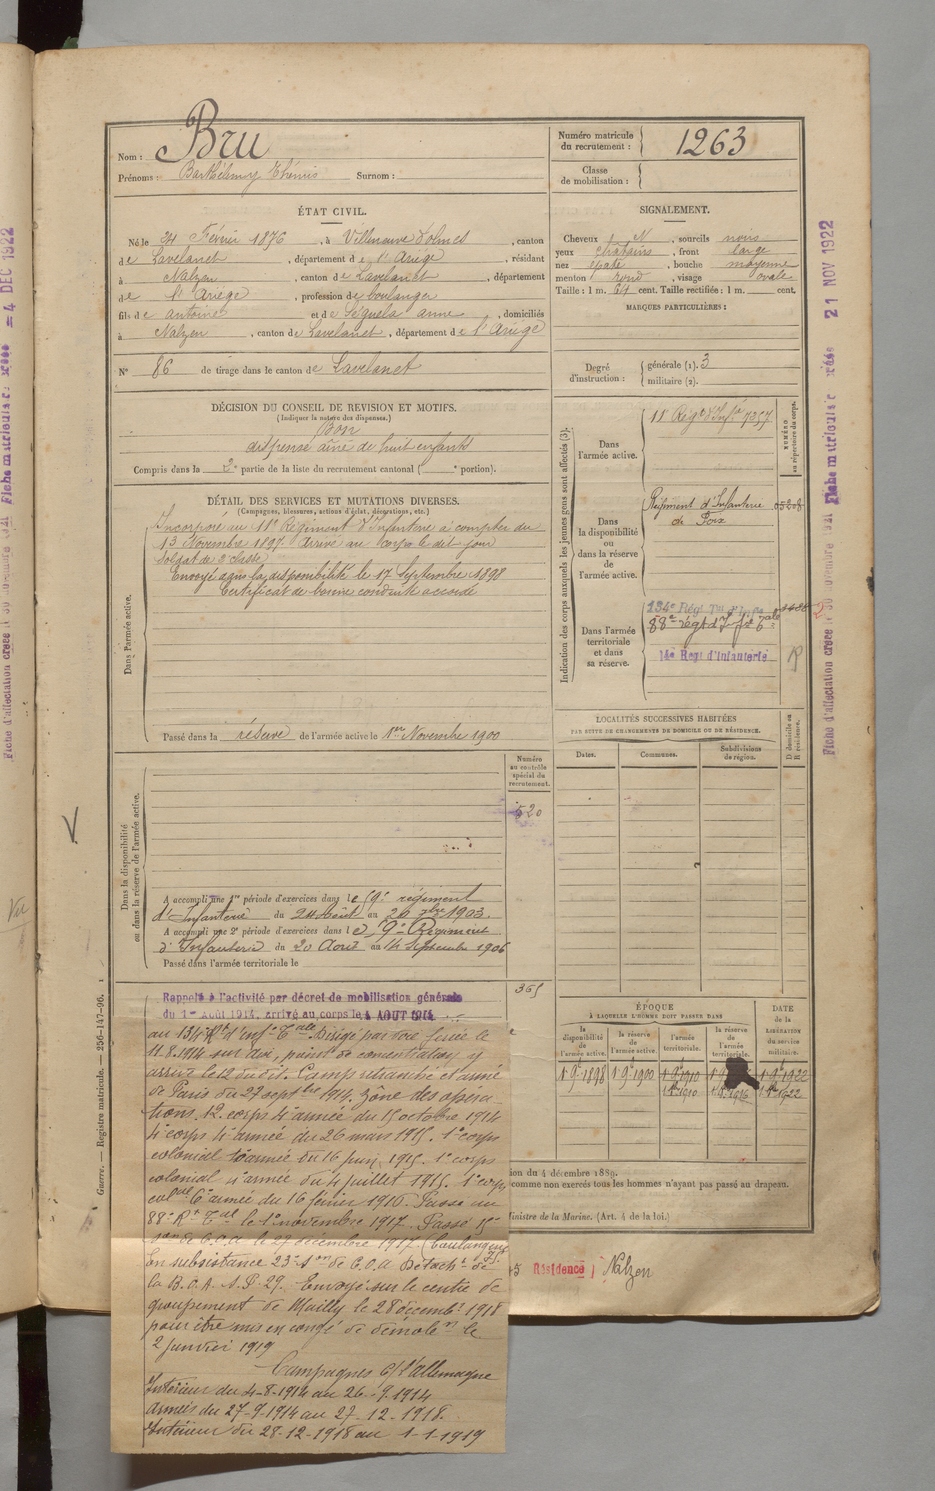 Nom : Bru
Prénoms : Barthélemy Thémis Surnom :
Numéro matricule du recrutement : 1263
Classe de mobilisation :
ÉTAT CIVIL.
Né le 24 Février 1876, à Villeneuve d'olmes, canton
de Lavelanet, département de l'Ariège, résidant
à Nalzen, canton de Lavelanet, département
de l'Ariège, profession de boulanger
fils de antoine et de Séguéla anne, domiciliés
à Nalzen, canton de Lavelanet, département de l'Ariège
N° 86 de tirage dans le canton de Lavelanet
SIGNALEMENT.
Cheveux et N, sourcils noirs
yeux chatains, front large
nez épaté, bouche moyenne
menton rond, visage ovale
Taille : 1 m. 61 cent. Taille rectifiée : 1 m. cent.
MARQUES PARTICULIÈRES :
Degré d'instruction : générale (1). 3
militaire (2).
DÉCISION DU CONSEIL DE REVISION ET MOTIFS.
(Indiquer la nature des dispenses.)
Bon
dispensé aîné de huit enfants
Compris dans la 2e partie de la liste du recrutement cantonal ( e portion).
DÉTAIL DES SERVICES ET MUTATIONS DIVERSES.
(Campagnes, blessures, actions d'éclat, décorations, etc.)
Dans l'armée active.
Incorporé au 11e Régiment d'Infanterie à compter du
13 Novembre 1897 Arrivé au corps le dit jour
Soldat de 2e classe
Envoyé dans la disponibilité le 17 Septembre 1898
Certificat de bonne conduite accordé
Passé dans la réserve de l'armée active le 1er Novembre 1900
Indication des corps auxquels les jeunes gens sont affectés (3).
NUMÉRO au répertoire du corps.
Dans l'armée active.
11e Régt d'Infie 7357
Dans la disponibilité ou dans la réserve de l'armée active.
Régiment d'Infanterie
de Foix
05208
Dans l'armée territoriale et dans sa réserve.
134e Régt Ter d'Infie
88e régt d'Infie Tale
14e Regt d'Infanterie
R
LOCALITÉS SUCCESSIVES HABITÉES
PAR SUITE DE CHANGEMENTS DE DOMICILE OU DE RÉSIDENCE.
Dates. Communes. Subdivisions de région. D domicile ou R résidence.
Dans la disponibilité ou dans la réserve de l'armée active.
Numéro au contrôle spécial du recrutement.
520
A accompli une 1re période d'exercices dans le 59e régiment
d'Infanterie du 24 Août au 20 7bre 1903.
A accompli une 2e période d'exercices dans le 59e Régiment
d'Infanterie du 20 Août au 14 Septembre 1906
Passé dans l'armée territoriale le
365
Rappelé à l'activité par décret de mobilisation générale
du 1er Août 1914, arrivé au corps le 4 AOUT 1914
au 134e Rt d'Infie Tale Dirigé par voie ferrée le
11.8.1914 sur aux, point de concentration y
arrivé le 12 du dit. Camp retranché et armée
de Paris du 27 septbre 1914. zône des opéra-
tions. 12. corps 4e armée du 15 octobre 1914
4e corps 4e armée du 26 mars 1915. 1er corps
colonial 10e armée du 16 juin 1915. 1er corps
colonial 4e armée du 4 juillet 1915. 1er corps
colal 6e armée du 16 février 1916. Passé au
88e Rt Tal le 1er novembre 1917. Passé 15e
Son de C.O.A le 27 décembre 1917 (boulanger)
En subsistance 23e Son de C.O.A Détacht de
la B.O.A. S.P. 29. Envoyé sur le centre de
groupement de Mailly le 28 decembe 1918
pour être mis en congé de démolon le
2 janvier 1919
Campagnes C/ l'allemagne
Intérieur du 4-8-1914 au 26-9-1914
Armées du 27-9-1914 au 27-12-1918.
Intérieur du 28-12-1918 au 1-1-1919
ÉPOQUE
À LAQUELLE L'HOMME DOIT PASSER DANS
la disponibilité de l'armée active. la réserve de l'armée active. l'armée territoriale. la réserve de l'armée territoriale. DATE de la LIBÉRATION du service militaire.
1 9bre 1898 1 9bre 1900 1 9bre 1910 1 9bre 1922
1 8bre 1910 1 8bre 1916 1 8bre 1922
ion du 4 décembre 1889.
comme non exercés tous les hommes n'ayant pas passé au drapeau.
Ministre de la Marine. (Art. 4 de la loi.)
Résidence Nalzen
Guerre. — Registre matricule. — 256-147-96.
Fiche matricule créée = 4 DEC 1922
Fiche matricule créée 21 NOV 1922
Vu